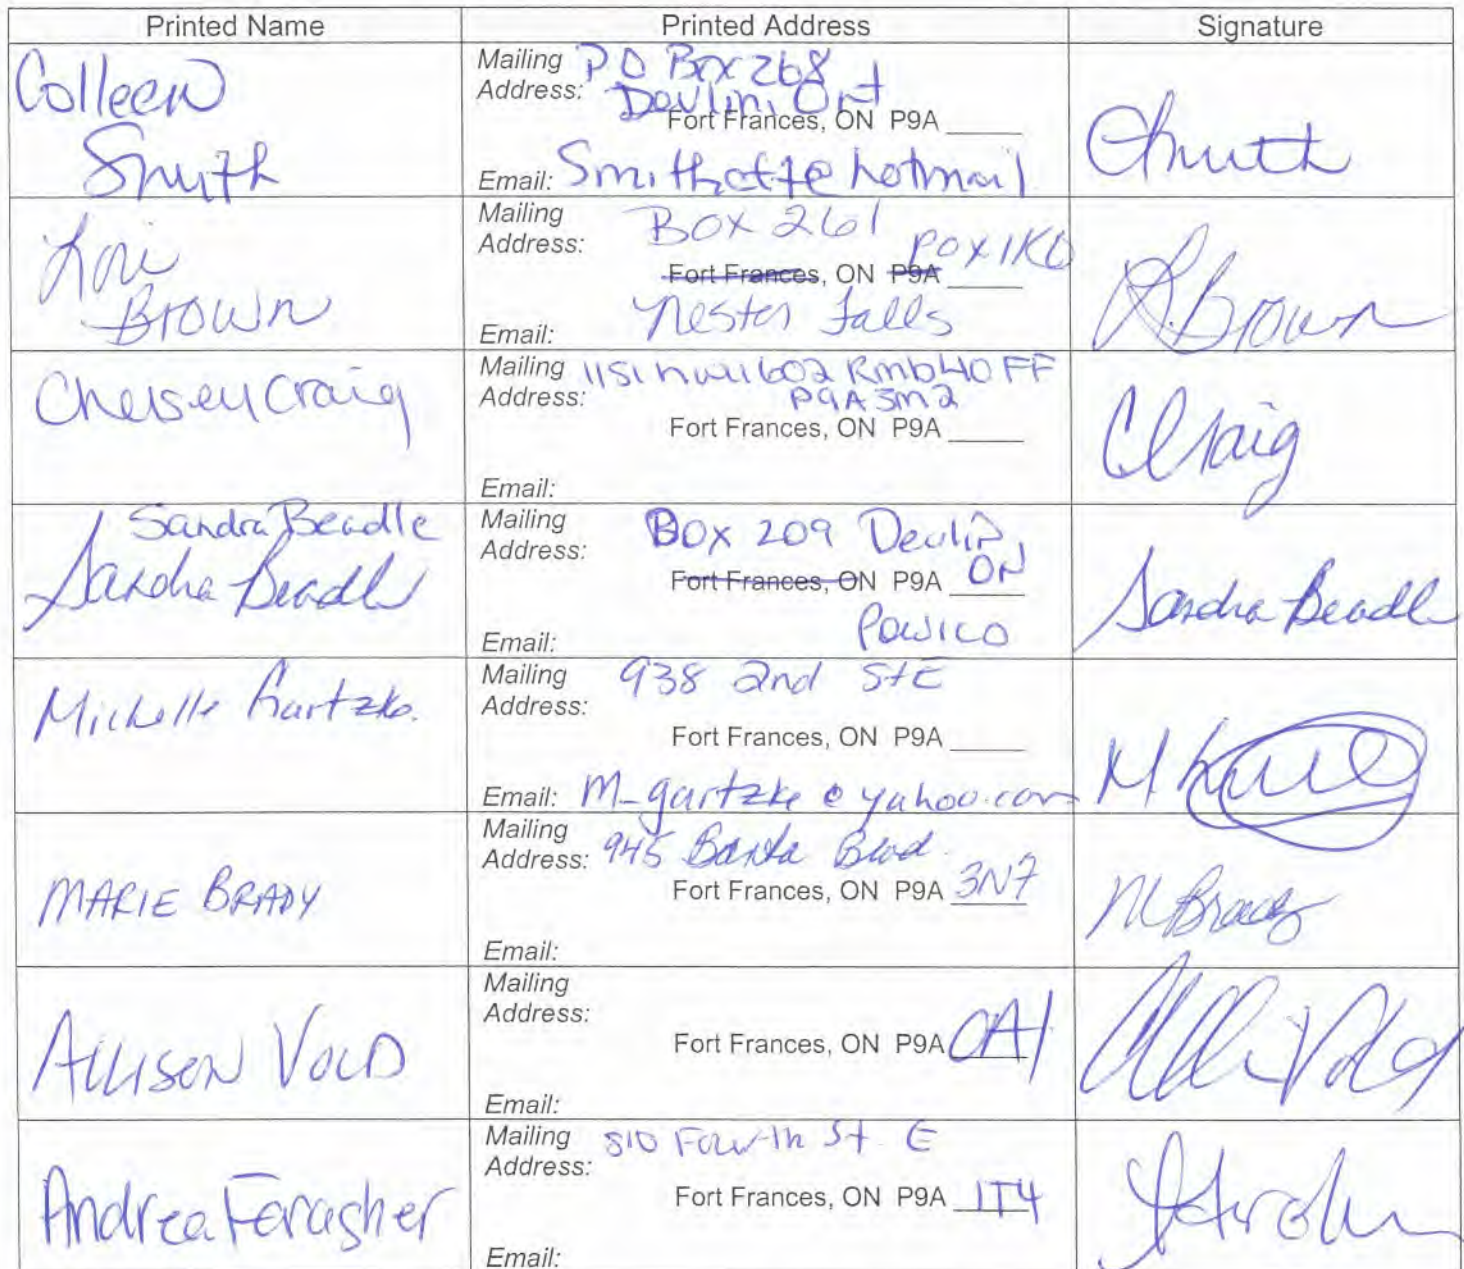 Printed Name Printed Address Signature
Colleen
Smith
Mailing Address: P O Box 268
Devlin, Ont
Fort Frances, ON P9A ____
Email: hotmail
Lori
Brown
Mailing Address: Box 261
Fort Frances, ON P9A P0X1K0
Nestor Falls
Email:
L Brown
Chelsey Craig
Mailing Address: 1151 hwy 602 Rmb40 FF
P9A3M2
Fort Frances, ON P9A ____
Email:
C Craig
Sandra Beadle
Sandra Beadle
Mailing Address: Box 209 Devlin
Fort Frances, ON P9A ON
P0W1C0
Email:
Sandra Beadle
Michelle Gartzke
Mailing Address: 938 2nd St E
Fort Frances, ON P9A ____
Email: M_gartzke@yahoo.com
MARIE BRADY
Mailing Address: 945 Blvd.
Fort Frances, ON P9A 3N7
Email:
M Brady
ALLISON VOLD
Mailing Address:
Fort Frances, ON P9A 0A1
Email:
Andrea Faragher
Mailing Address: 810 Fourth St E
Fort Frances, ON P9A 1T4
Email: